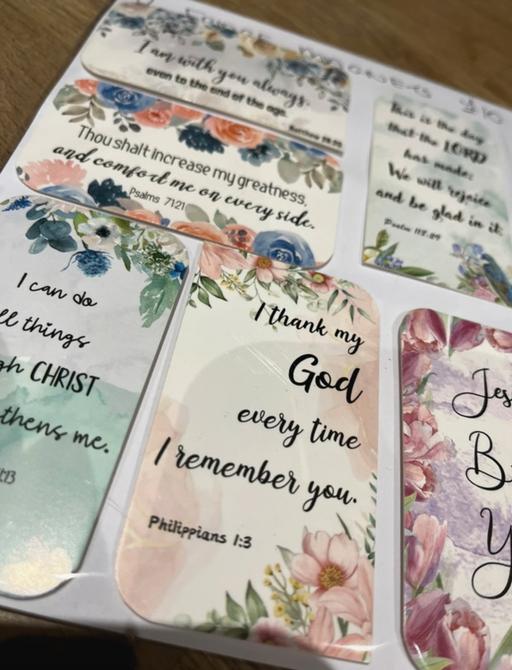 I am with you always,
even to the end of the age.
Matthew 28:20
Thou shalt increase my greatness,
and comfort me on every side.
Psalms 71:21
This is the day
that the LORD
has made;
We will rejoice
and be glad in it.
Psalm 118:24
I can do
all things
CHRIST
me.
I thank my
God
every time
I remember you.
Philippians 1:3